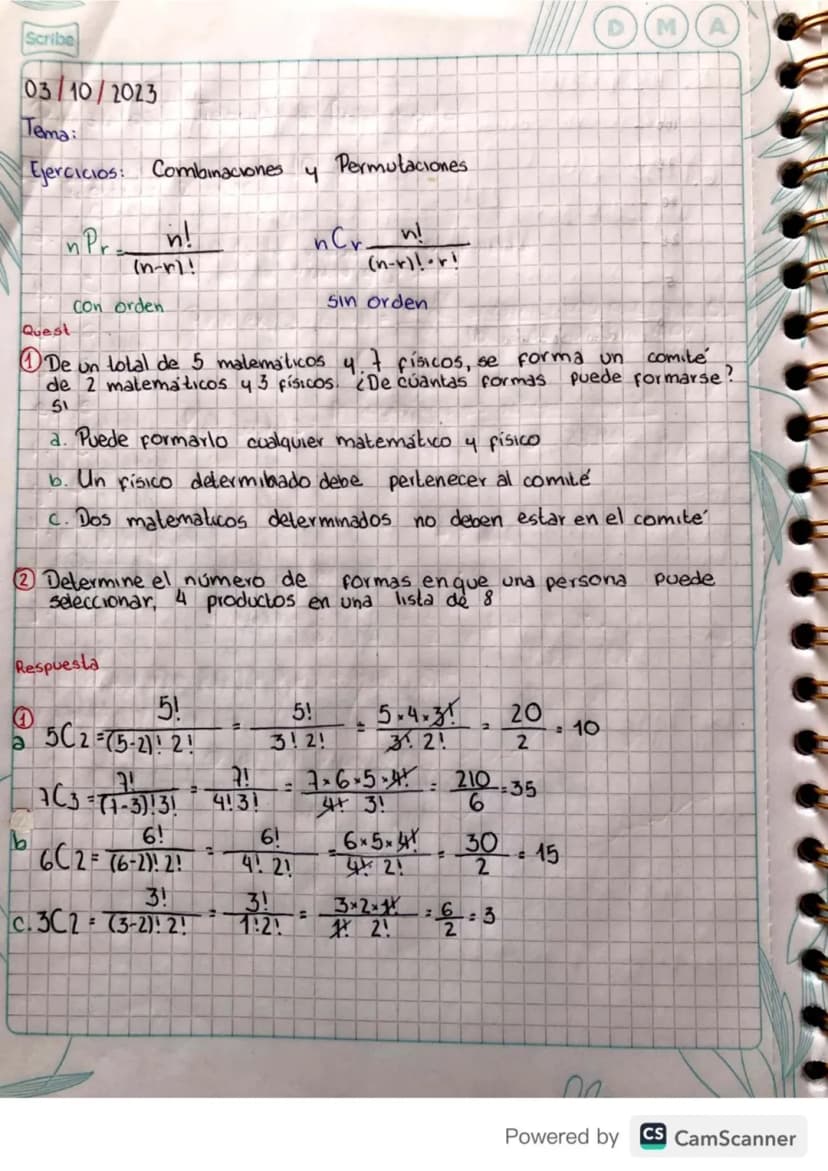 Scribe
D M A
03/10/2023
Tema:
Ejercicios: Combinaciones y Permutaciones
nPr = n!/(n-r)!
nCr = n!/(n-r)!·r!
con orden
sin orden
Quest
① De un total de 5 matemáticos y 7 físicos, se forma un comité
de 2 matemáticos y 3 físicos. ¿De cúantas formas puede formarse?
si
a. Puede formarlo cualquier matemático y físico
b. Un físico determinado debe pertenecer al comité
c. Dos matematicos determinados no deben estar en el comite
② Determine el número de formas en que una persona puede
seleccionar, 4 productos en una lista de 8
Respuesta
①
a 5C2 = 5!/(5-2)! 2! = 5!/3! 2! = 5×4×3!/3! 2! = 20/2 = 10
7C3 = 7!/(7-3)! 3! = 7!/4! 3! = 7×6×5×4!/4! 3! = 210/6 = 35
b 6C2 = 6!/(6-2)! 2! = 6!/4! 2! = 6×5×4!/4! 2! = 30/2 = 15
c. 3C2 = 3!/(3-2)! 2! = 3!/1! 2! = 3×2×1!/1! 2! = 6/2 = 3
Powered by CS CamScanner